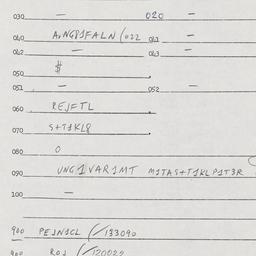 030 — 020 —
040 A,NG81FALN (022 041 —
042 — 043 —
050 $
051 — 052 —
060 REJFTL
070 S+T1KL8
080 0
090 UNG1VAR1MT M1TAS+T1KLP1T3R
100 —
900 PEJN1CL (/133090
900 ROJ (/120022